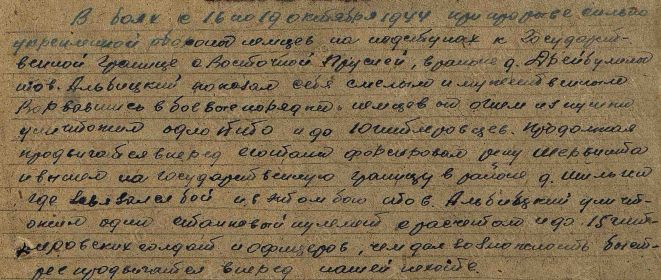 В боях с 16 по 19 октября 1944 при прорыве сильно
укрепленной обороны немцев на подступах к Государст-
венной границе с Восточной Пруссией, в районе д.
тов. Альвицкий показал себя смелым и мужественным
Ворвавшись в боевые порядки немцев он огнем из пушки
уничтожил одно ПТО и до 10 гитлеровцев. Продолжая
продвигаться вперед с боями форсировал реку Шервинта
и вышел на государственную границу в районе д.
где завязался бой и в этом бою тов. Альвицкий уничт-
ожил один станковый пулемет с расчетом и до 15 гит-
леровских солдат и офицеров, чем дал возможность быст-
рее продвигаться вперед нашей пехоте.